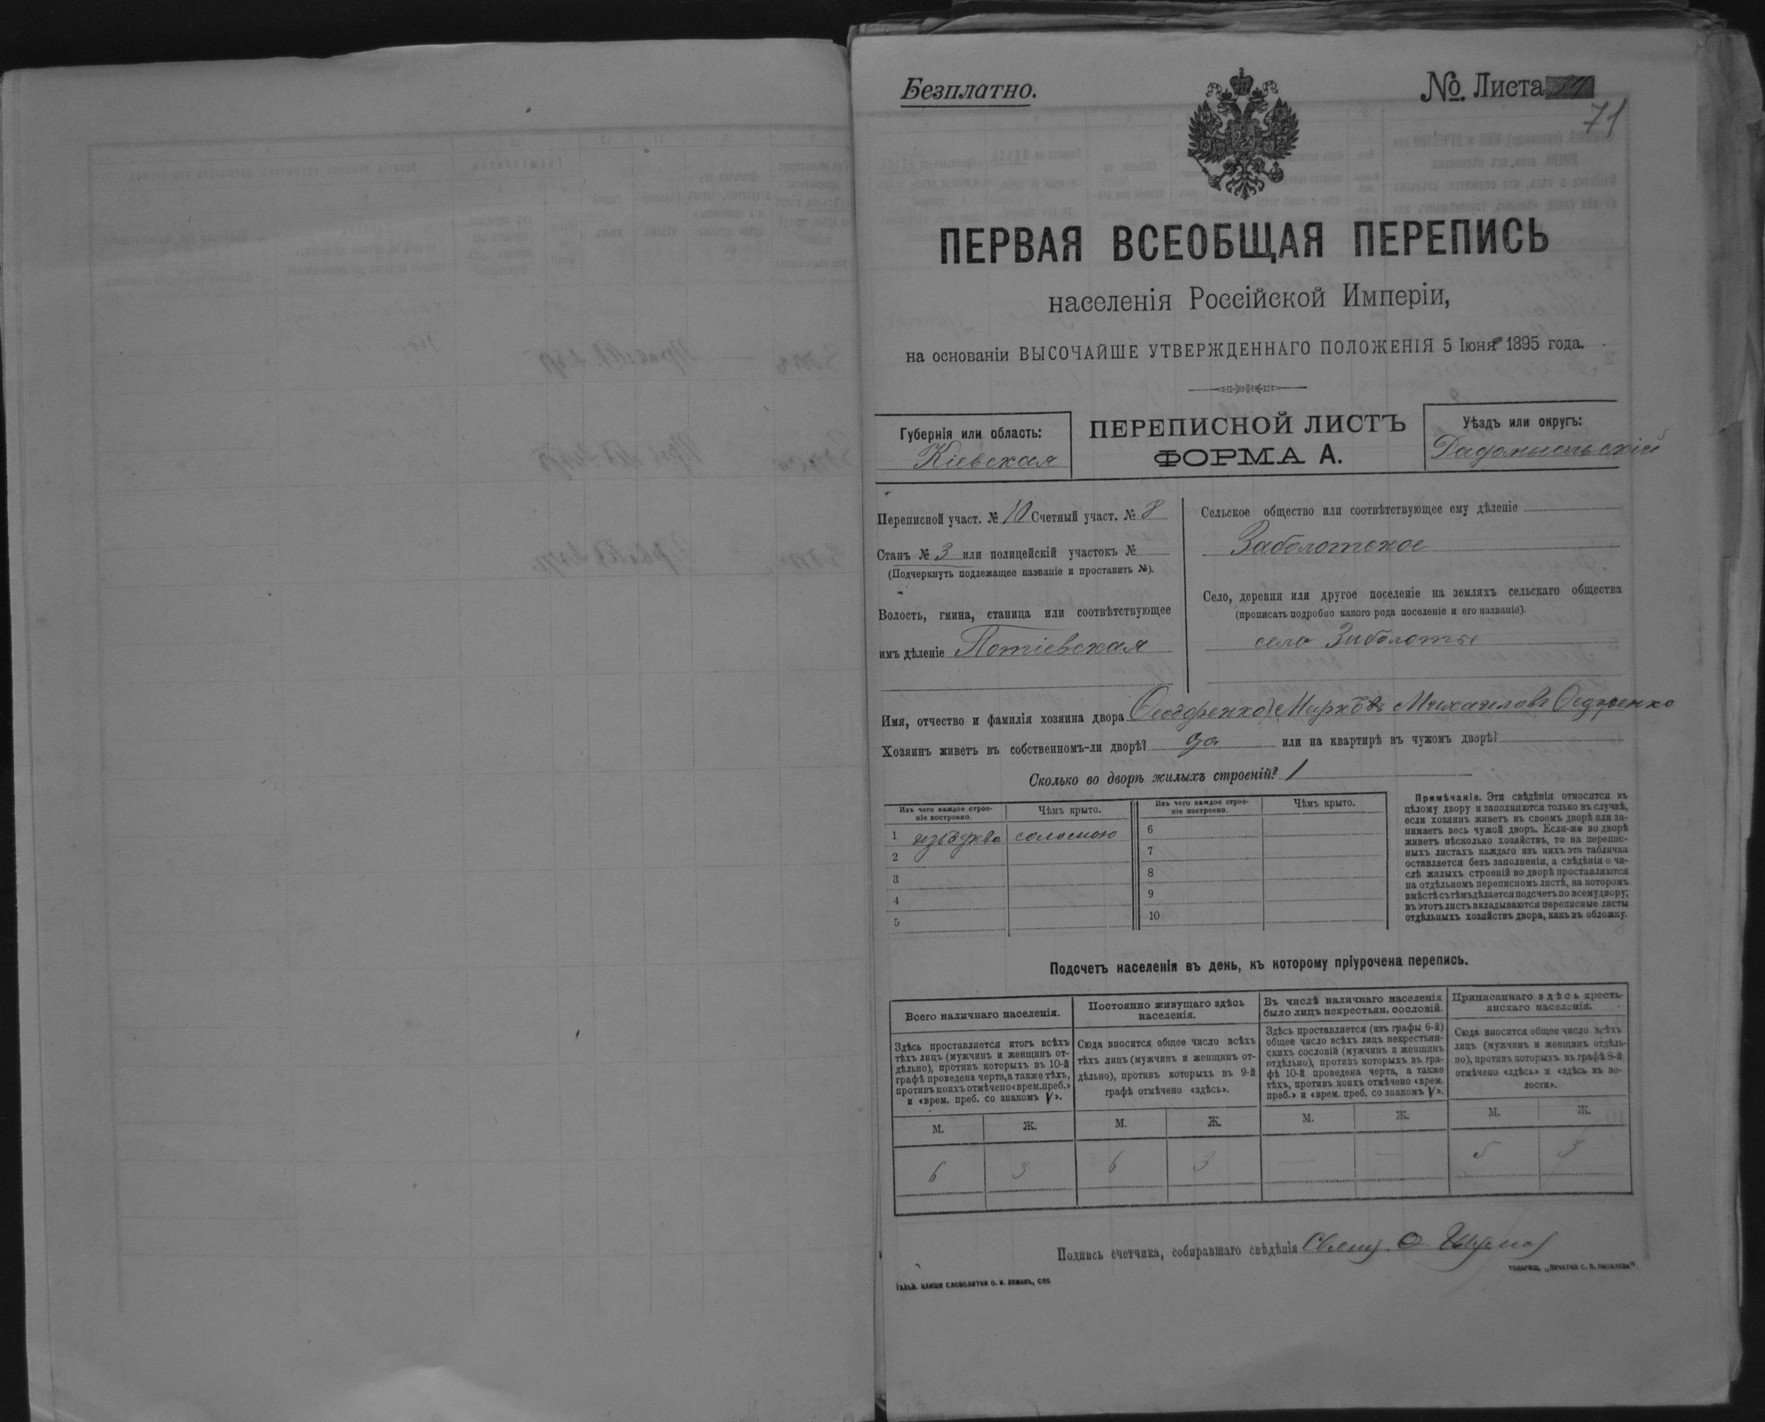 Безплатно.
№ Листа
71
ПЕРВАЯ ВСЕОБЩАЯ ПЕРЕПИСЬ
населенія Россійской Имперіи,
на основаніи ВЫСОЧАЙШЕ УТВЕРЖДЕННАГО ПОЛОЖЕНІЯ 5 Іюня 1895 года.
Губернія или область:
Кіевская
ПЕРЕПИСНОЙ ЛИСТЪ
ФОРМА А.
Уѣздъ или округъ:
Радомысльскій
Переписной участ. № 10 Счетный участ. № 8
Станъ № 3 или полицейскій участокъ №
(Подчеркнуть подлежащее названіе и проставить №).
Волость, гмина, станица или соотвѣтствующее
имъ дѣленіе Потіевская
Сельское общество или соотвѣтствующее ему дѣленіе
Заболотское
Село, деревня или другое поселеніе на земляхъ сельскаго общества
(прописать подробно какого рода поселеніе и его названіе).
село Заболотье
Имя, отчество и фамилія хозяина двора Михайловъ
Хозяинъ живетъ въ собственномъ-ли дворѣ? да или на квартирѣ въ чужомъ дворѣ?
Сколько во дворѣ жилыхъ строеній? 1
Изъ чего каждое строе-
ніе построено.
Чѣмъ крыто.
1 соломою
2
3
4
5
Изъ чего каждое строе-
ніе построено.
Чѣмъ крыто.
6
7
8
9
10
Примѣчаніе. Эти свѣдѣнія относятся къ
цѣлому двору и заполняются только въ случаѣ,
если хозяинъ живетъ въ своемъ дворѣ или за-
нимаетъ весь чужой дворъ. Если-же во дворѣ
живетъ нѣсколько хозяйствъ, то на перепис-
ныхъ листахъ каждаго изъ нихъ эта табличка
оставляется безъ заполненія, а свѣдѣнія о чи-
слѣ жилыхъ строеній во дворѣ проставляются
на отдѣльномъ переписномъ листѣ, на которомъ
вмѣстѣ съ тѣмъ дѣлается подсчетъ по всему двору;
въ этотъ листъ вкладываются переписные листы
отдѣльныхъ хозяйствъ двора, какъ въ обложку.
Подсчетъ населенія въ день, къ которому пріурочена перепись.
Всего наличнаго населенія.
Здѣсь проставляется итогъ всѣхъ
тѣхъ лицъ (мужчинъ и женщинъ от-
дѣльно), противъ которыхъ въ 10-й
графѣ проведена черта, а также тѣхъ,
противъ коихъ отмѣчено «врем. преб.»
и «врем. преб. со знакомъ V».
М. Ж.
6 3
Постоянно живущаго здѣсь
населенія.
Сюда вносится общее число всѣхъ
тѣхъ лицъ (мужчинъ и женщинъ от-
дѣльно), противъ которыхъ въ 9-й
графѣ отмѣчено «здѣсь».
М. Ж.
6 3
Въ числѣ наличнаго населенія
было лицъ некрестьян. сословій.
Здѣсь проставляется (изъ графы 6-й)
общее число всѣхъ лицъ некрестьян-
скихъ сословій (мужчинъ и женщинъ
отдѣльно), противъ которыхъ въ гра-
фѣ 10-й проведена черта, а также
тѣхъ, противъ коихъ отмѣчено «врем.
преб.» и «врем. преб. со знакомъ V».
М. Ж.
— —
Приписаннаго здѣсь кресть-
янскаго населенія.
Сюда вносится общее число всѣхъ
лицъ (мужчинъ и женщинъ отдѣль-
но), противъ которыхъ въ графѣ 8-й
отмѣчено «здѣсь» и «здѣсь въ во-
лости».
М. Ж.
5 3
Подпись счетчика, собиравшаго свѣдѣнія
Гальв. клише словолитни О. И. Леманъ, СПБ
Товарищ. „Печатня С. П. Яковлева“